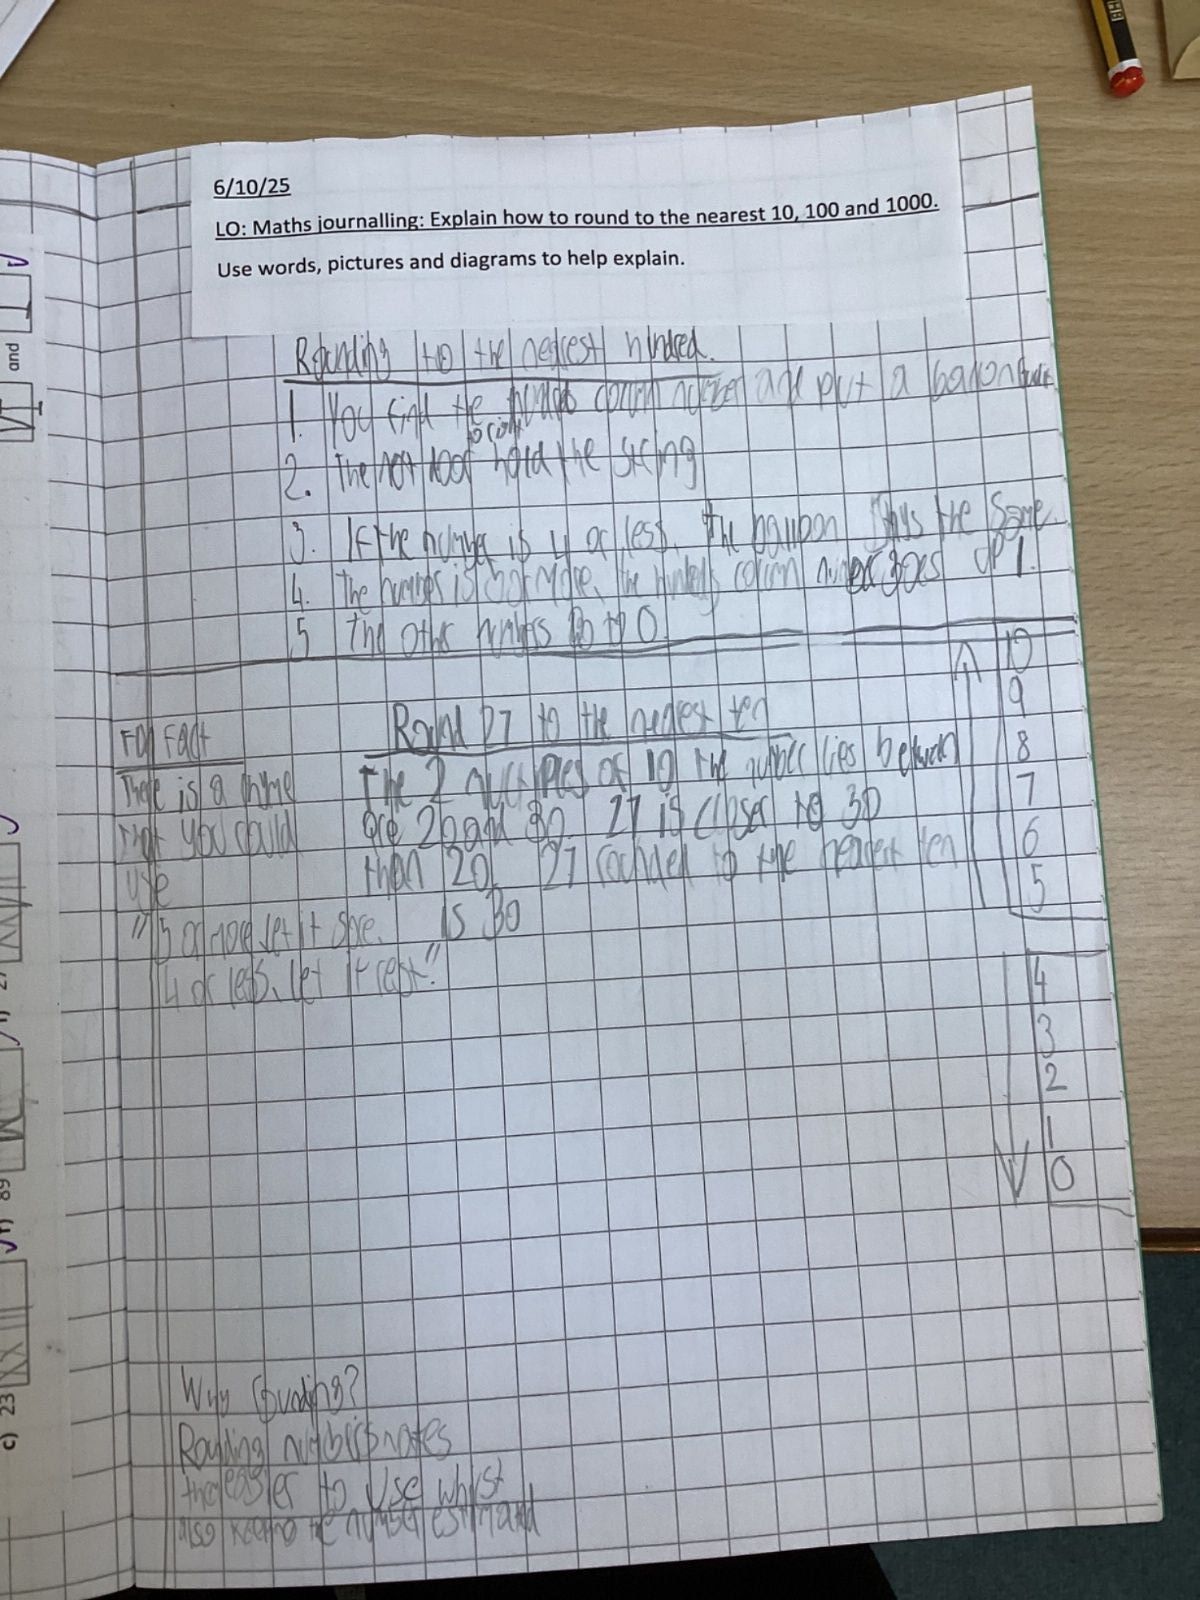 6/10/25
LO: Maths journalling: Explain how to round to the nearest 10, 100 and 1000.
Use words, pictures and diagrams to help explain.
Rounding to the nearest hundred.
1. You find the column number and put a
2. The next door hold the string
3. If the number is 4 or less, the balloon stays the same
4. the number is or more, the column number goes up 1.
5 The other numbers go to 0
Round 27 to the nearest ten
The 2 multiples of 10 the number lies between
are 20 and 30. 27 is closer to 30
than 20. 27 rounded to the nearest ten
is 30
Fact
There is a rhyme
that you could
use
"5 or more let it
4 or less, let it rest."
10
9
8
7
6
5
4
3
2
1
0
Why rounding?
Rounding numbers makes
easier to use whilst
also the number
and
c) 23
89